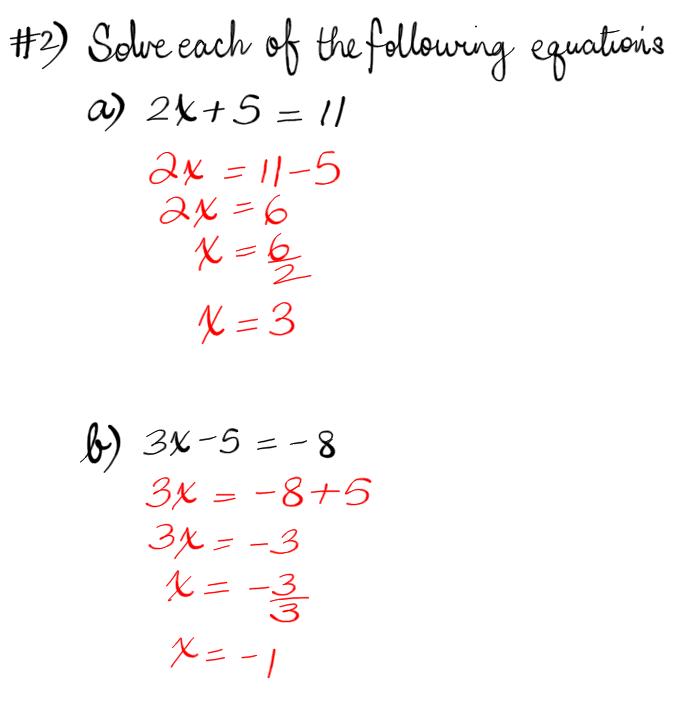 #2) Solve each of the following equations
a) 2x+5 = 11
2x = 11-5
2x = 6
x = 6/2
x = 3
b) 3x-5 = -8
3x = -8+5
3x = -3
x = -3/3
x = -1